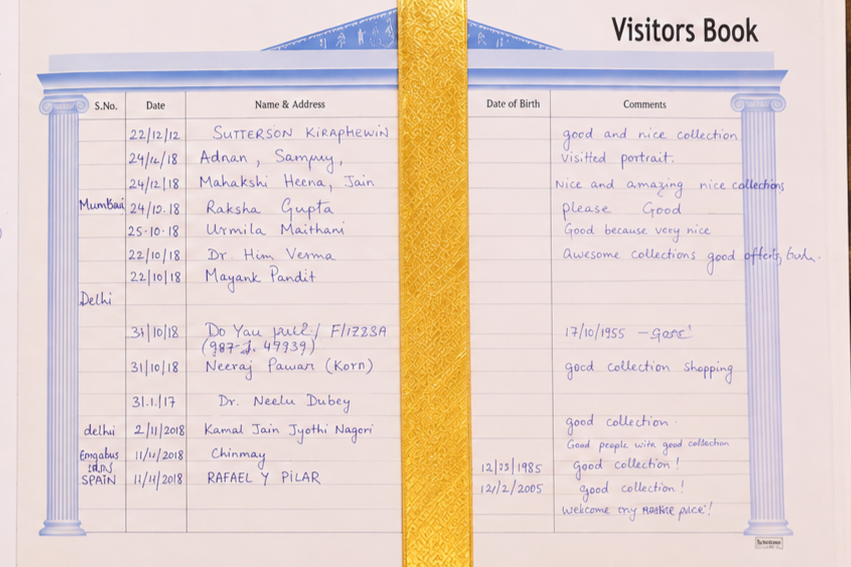 Visitors Book
S.No. Date Name & Address Date of Birth Comments
22/12/12 SUTTERSON KIRAPHEWIN good and nice collection
24/12/18 Adnan, Sampuy, visitted portrait.
24/12/18 Mahakshi Heena, Jain Nice and amazing nice collections
Mumbai 24/10.18 Raksha Gupta please Good
25-10-18 Urmila Maithani Good because very nice
22/10/18 Dr. Him Verma Awesome collections good
22/10/18 Mayank Pandit
Delhi
31/10/18 Do You 17/10/1955
31/10/18 Neeraj Pawar (Korn) good collection shopping
31.1./17 Dr. Neelu Dubey
good collection.
delhi 2/11/2018 Kamal Jain Jyothi Nagori
Good people with good collection
11/11/2018 Chinmay 12/03/1985 good collection!
SPAIN 11/11/2018 RAFAEL Y PILAR 12/2/2005 good collection!
Welcome my